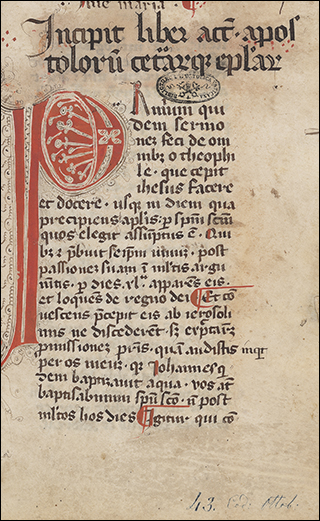 Aue maria
Incipit liber act· apos
toloru cetarqꝫ eplar
Primum qui
dem sermo
neꝫ feci de om
nibꝫ o theophi
le· que cepit
ihesus facere
et docere· usqꝫ in diem qua
precipiens aplis· p spm scm
quos elegit assuptus e· Qui
bꝫ et pbuit seipm uiuuꝫ· post
passioneꝫ suam in mltis argu
mtis· p dies xl apparens eis·
et loques de regno dei Et co
uescens pcepit eis ab ierosoli
mis ne discederent· sꝫ expectaret
pmissioneꝫ pris· qua audistis inqt
per os meuꝫ· qꝛ Johannes q
dem baptizauit aqua· uos at
baptisabimini spu sco· n post
mltos hos dies Igitur qui co
43. Cod. Ottob.